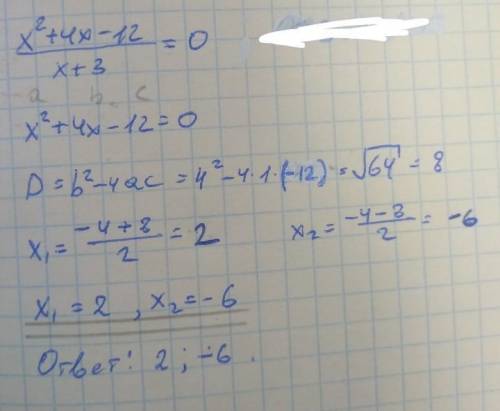 x²+4x-12 / x+3 = 0
a b c
x²+4x-12=0
D=b²-4ac=4²-4·1·(-12)=√64=8
x₁=-4+8/2=2 x₂=-4-8/2=-6
x₁=2, x₂=-6
Ответ: 2; -6.